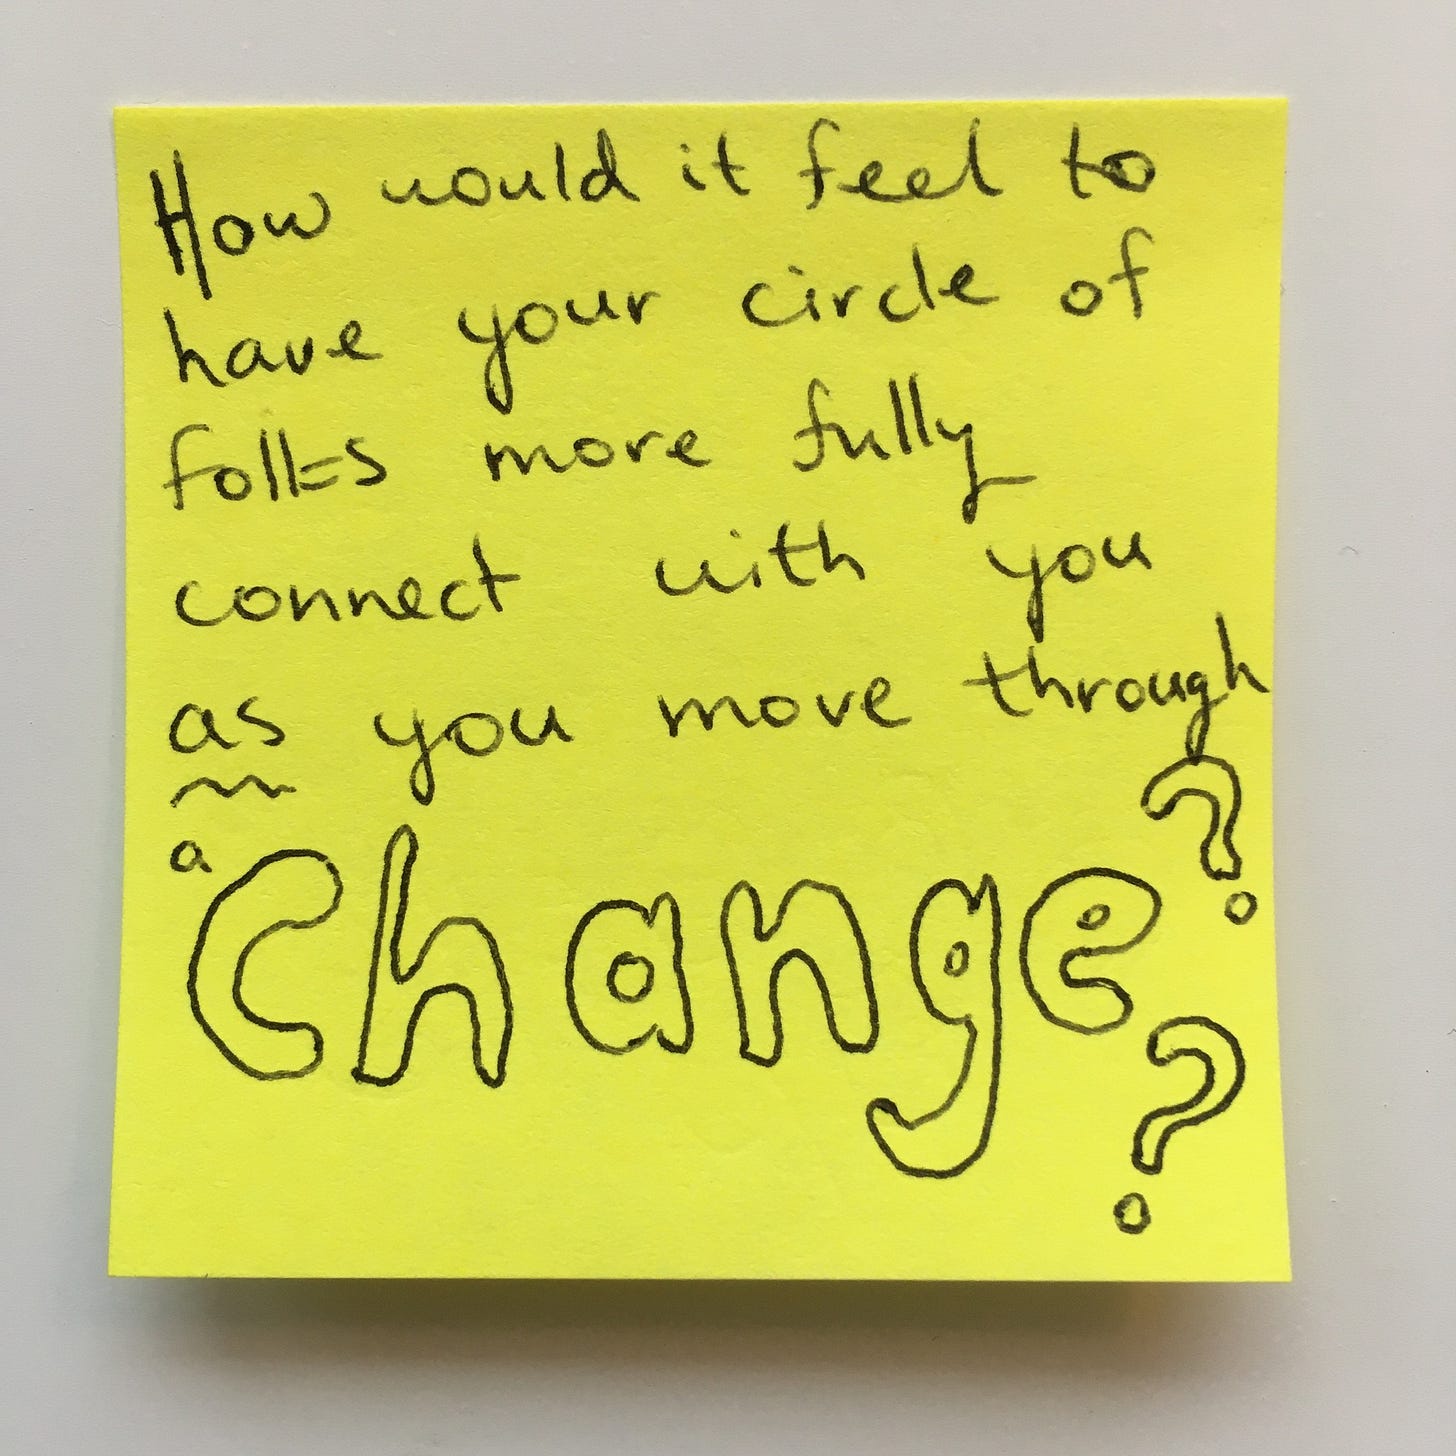 How would it feel to
have your circle of
folks more fully
connect with you
as you move through
a change??